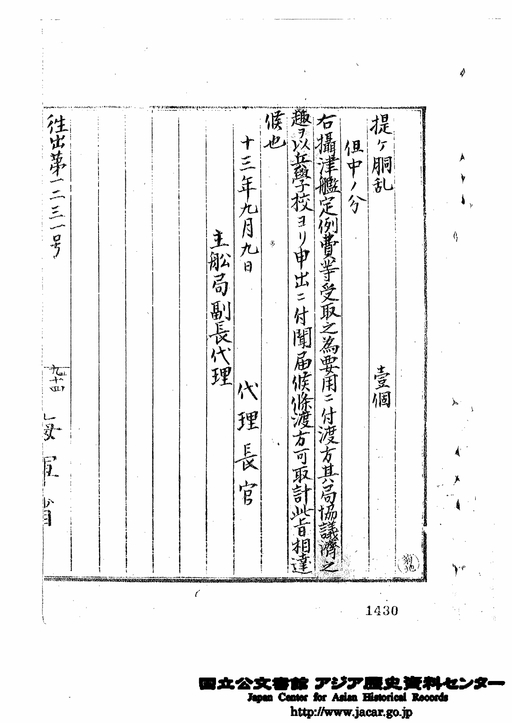 提ケ胴乱 壹個
但中ノ分
右攝津艦定例費等受取之為要用ニ付渡方其局協議濟之
趣ヲ以兵學校ヨリ申出ニ付聞届候條渡方可取計此旨相達
候也
十三年九月九日 代理長官
主舩局副長代理
往出第一二三一号 九ノ十四 海軍省
1430
国立公文書館 アジア歴史資料センター
Japan Center for Asian Historical Records
http://www.jacar.go.jp